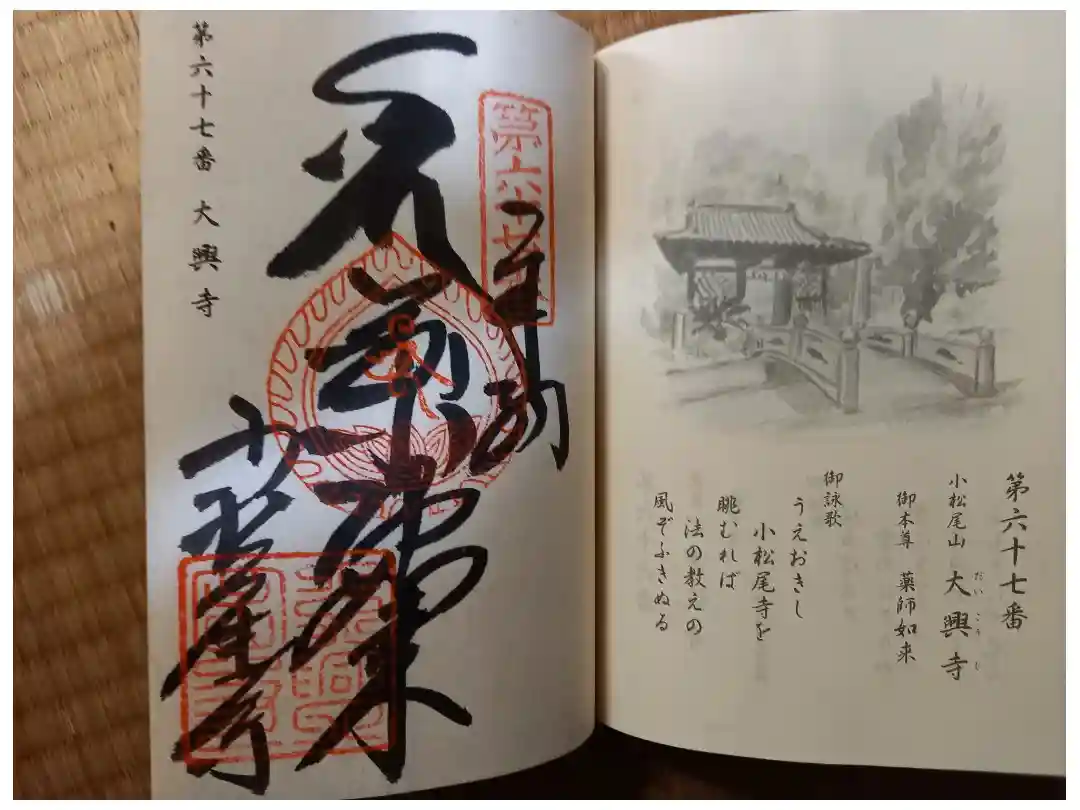 第六十七番
小松尾山 大興寺
だいこうじ
御本尊 薬師如来
御詠歌
うえおきし
小松尾寺を
眺むれば
法の教えの
風ぞふきぬる
第六十七番
奉納
第六十七番 大興寺